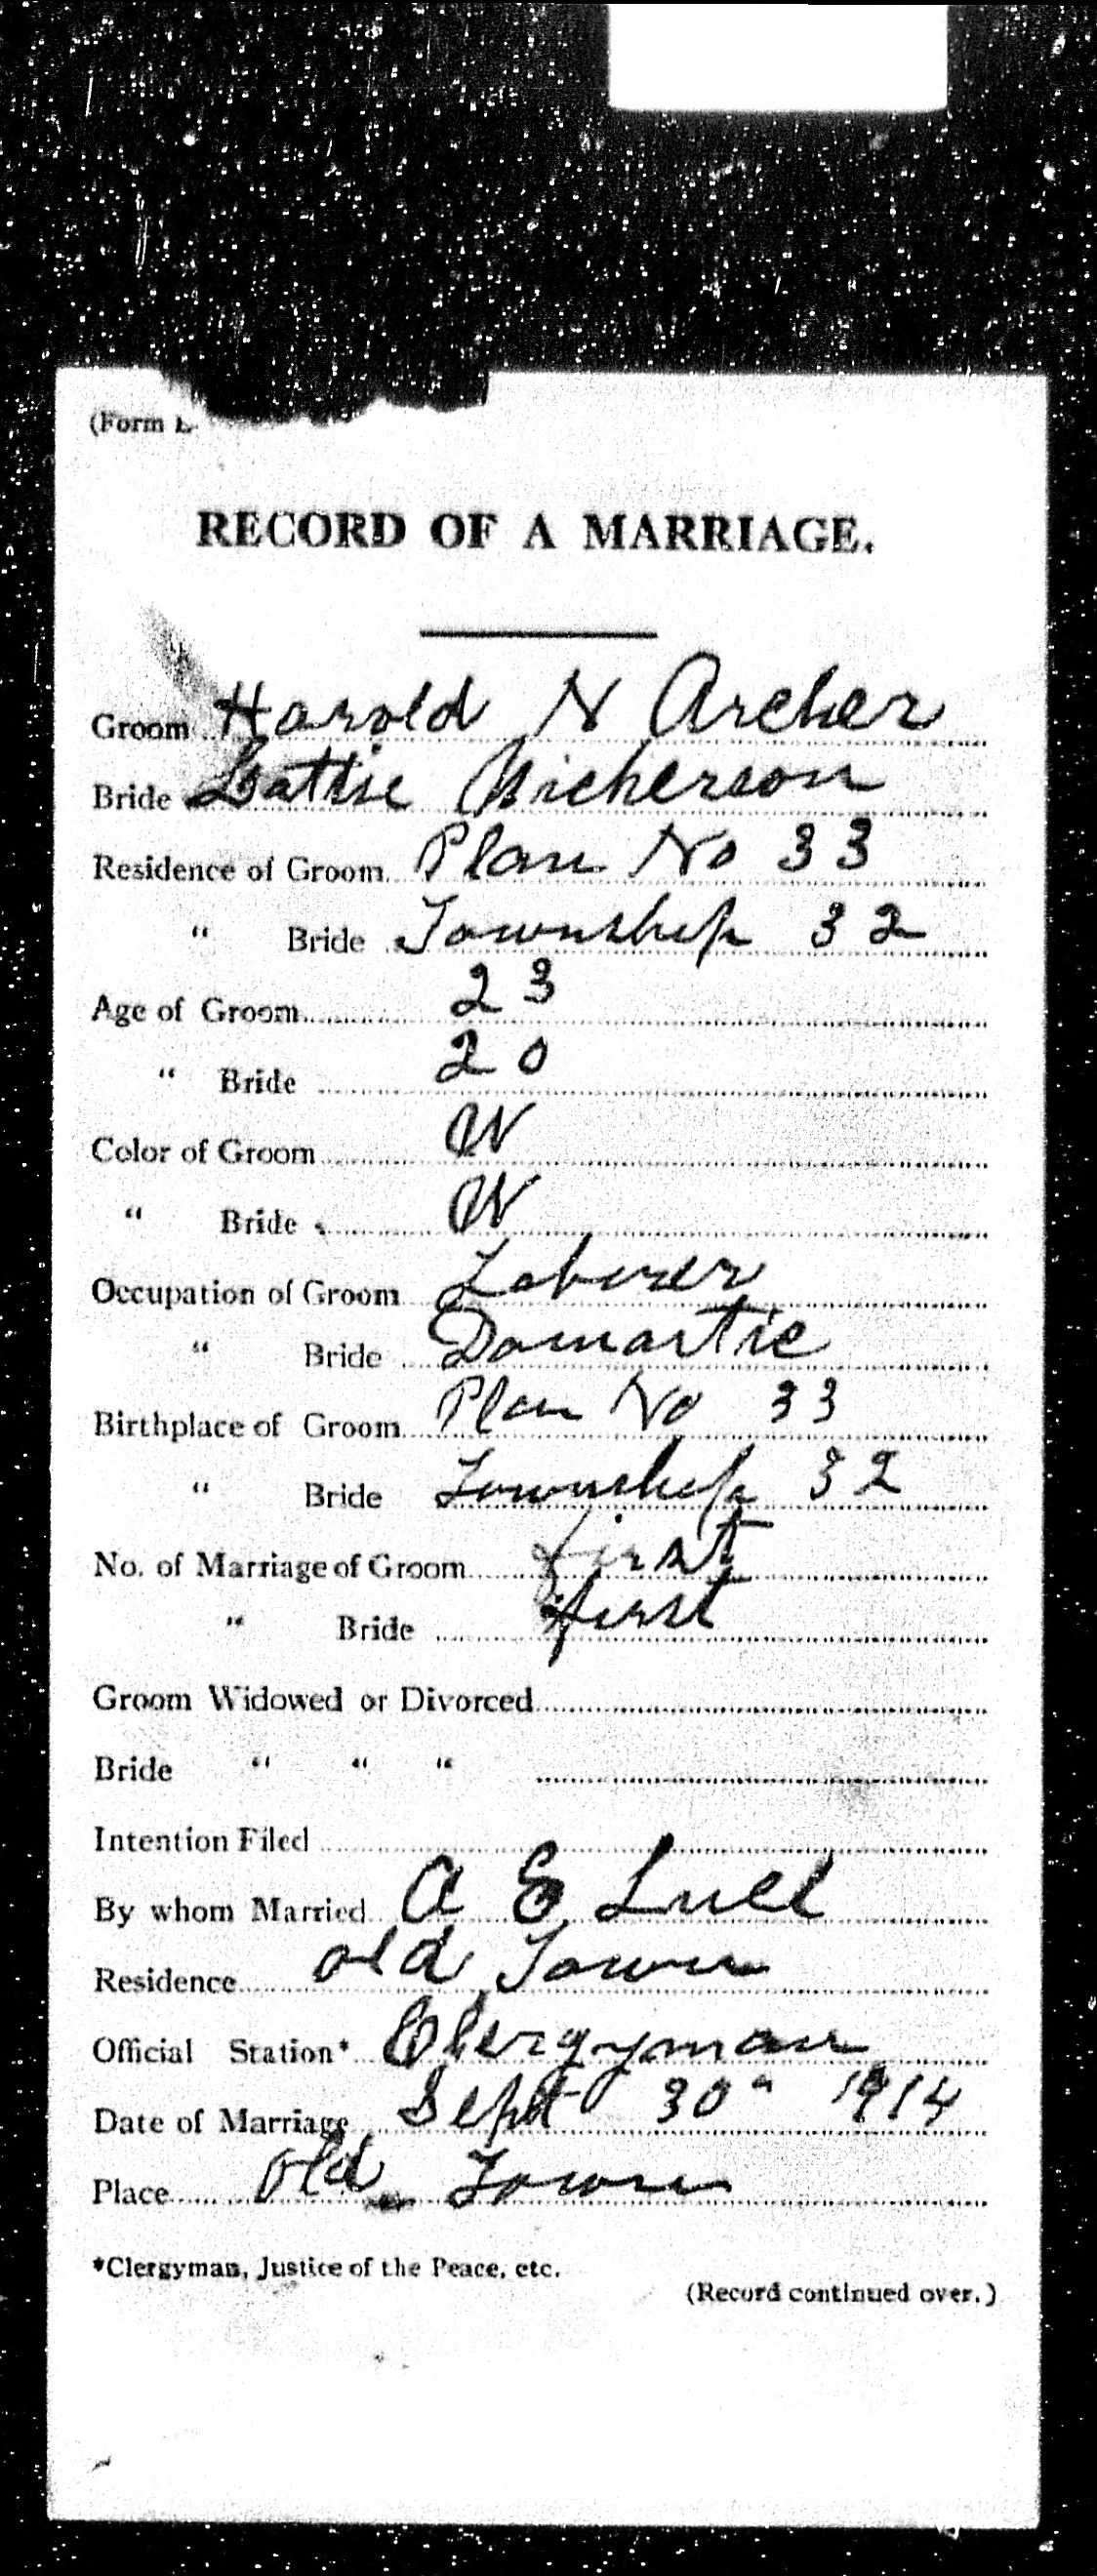 (Form
RECORD OF A MARRIAGE.
Groom Harold N Archer
Bride Lattie Nickerson
Residence of Groom Plan No 33
" Bride Township 32
Age of Groom 23
" Bride 20
Color of Groom W
" Bride W
Occupation of Groom Laborer
" Bride Domastic
Birthplace of Groom Plan No 33
" Bride Township 32
No. of Marriage of Groom first
" Bride first
Groom Widowed or Divorced
Bride " " "
Intention Filed
By whom Married A E Luce
Residence Old Town
Official Station* Clergyman
Date of Marriage Sept 30" 1914
Place Old Town
*Clergyman, Justice of the Peace, etc.
(Record continued over.)